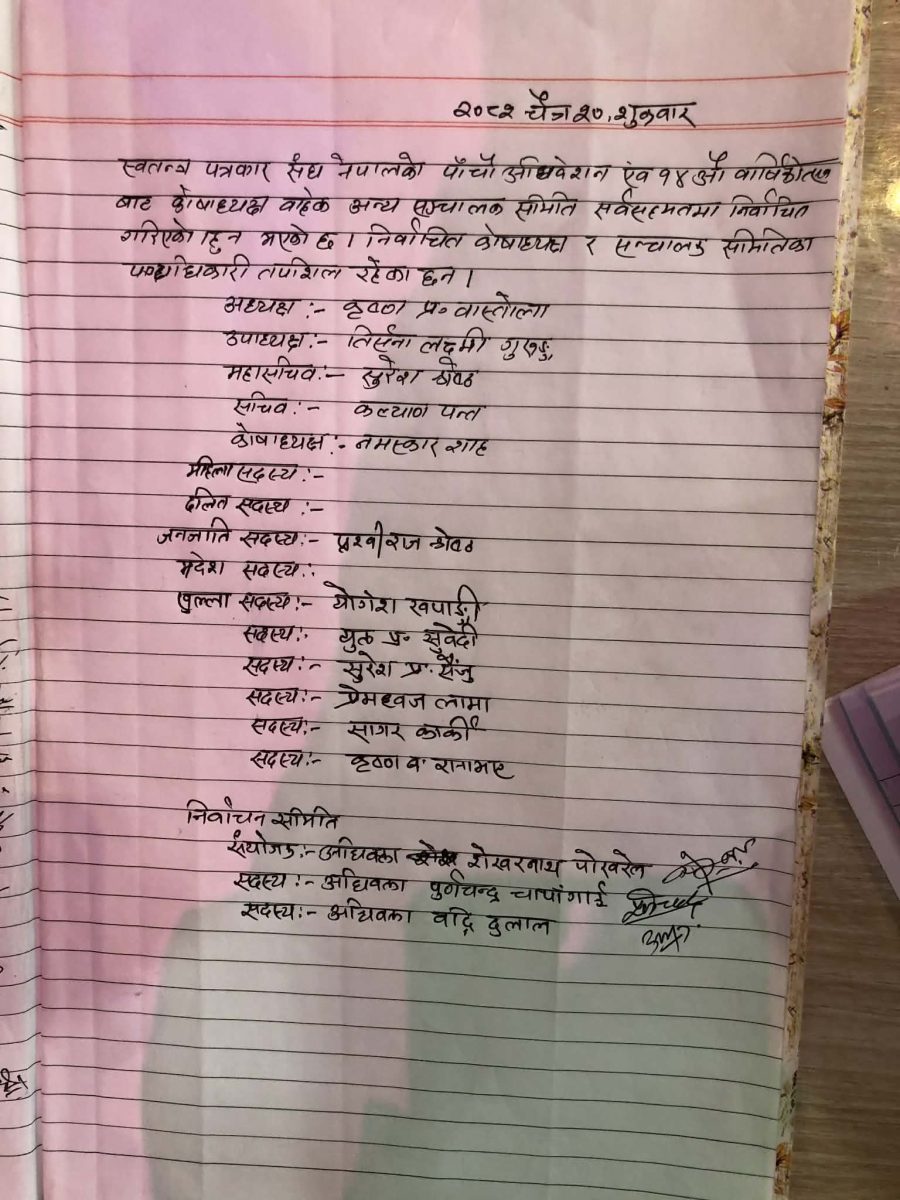 २०८२ चैत्र २०, शुक्रवार
स्वतन्त्र पत्रकार संघ नेपालको पाँचौ अधिवेशन एंव १४ औ वार्षिकोत्सव
बाट कोषाध्यक्ष वाहेक अन्य सञ्चालक समिति सर्वसहमतमा निर्वाचित
गरिएको हुन गएको छ । निर्वाचित कोषाध्यक्ष र सन्चालक समितिका
पदाधिकारी तपशिल रहेका छन ।
अध्यक्ष :- कृष्ण प्र॰ वास्तोला
उपाध्यक्ष:- तिर्सना लक्ष्मी गुरुङ्ग
महासचिव:- सुरेश श्रेष्ठ
सचिव:- कल्याण पन्त
कोषाध्यक्ष:- नमस्कार शाह
महिला सदस्य:-
दलित सदस्य:-
जनजाति सदस्य:- पृथ्वीराज श्रेष्ठ
मदेश सदस्य:
खुल्ला सदस्य:- योगेश खपाङ्गी
सदस्य:- प्र॰ सुवेदी
सदस्य:- सुरेश प्र॰ सैंजु
सदस्य:- प्रेमध्वज लामा
सदस्य:- सागर कार्की
सदस्य:- कृष्ण व॰ रानाभाट
निर्वाचन समिति
संयोजक:- अधिवक्ता शेखरनाथ पोखरेल
सदस्य:- अधिवक्ता पुर्णचन्द्र चापागाई
सदस्य:- अधिवक्ता वद्रि दुलाल